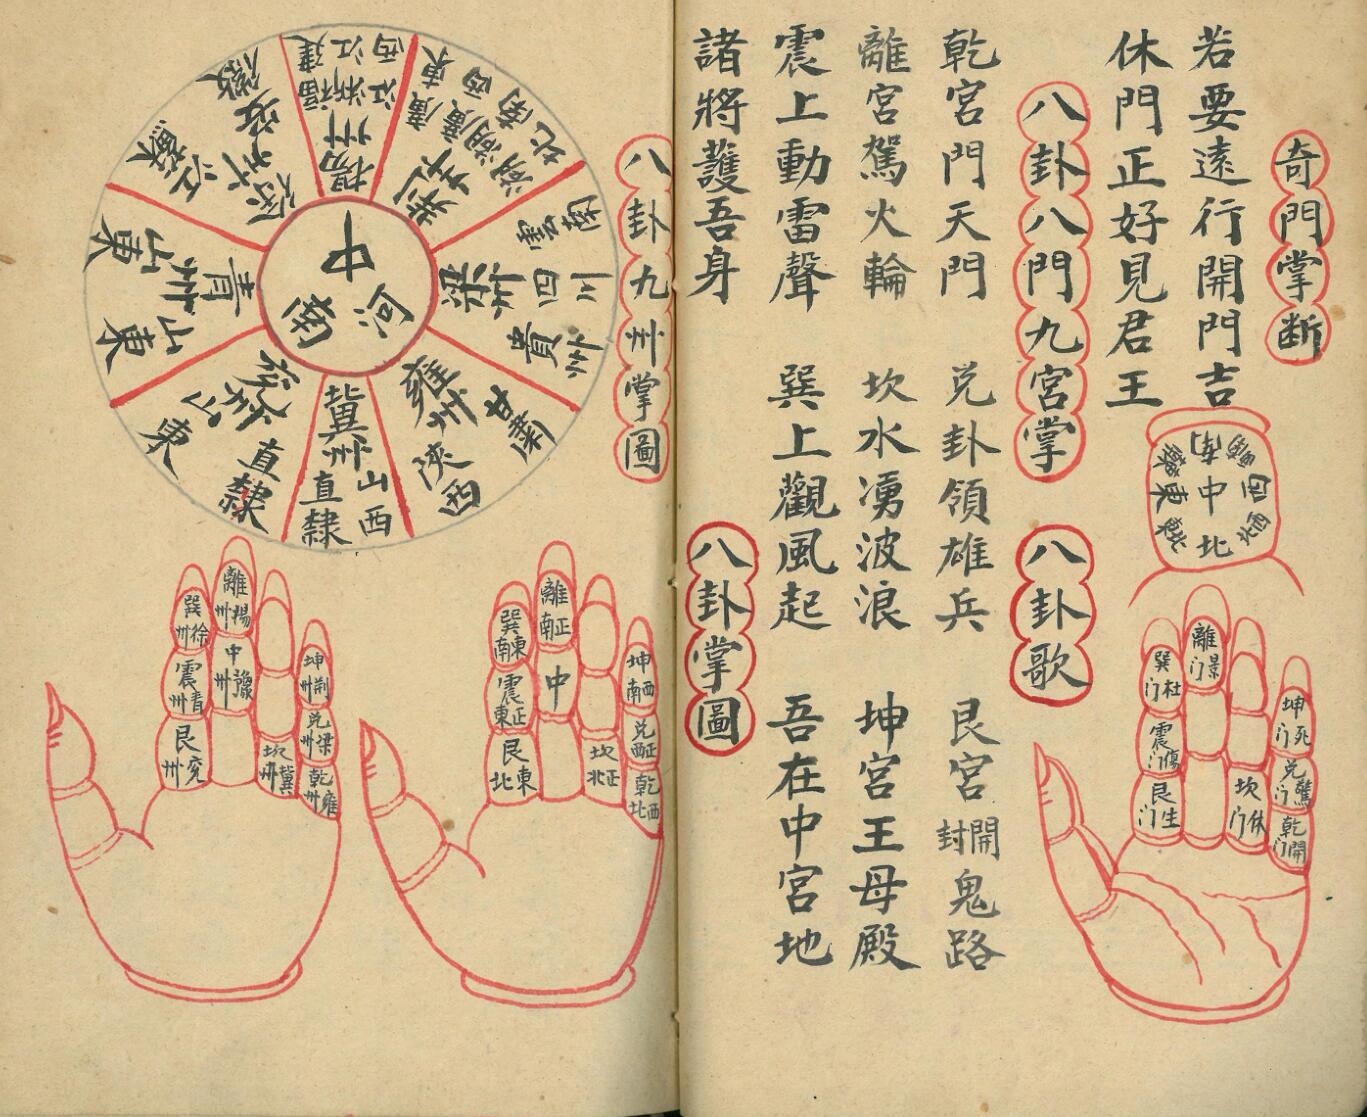 奇門掌断
若要遠行開門吉
休門正好見君王
南
中
北
東
西
八卦八門九宮掌
八卦歌
乾宮門天門 兌卦領雄兵 艮宮封開鬼路
離宮駕火輪 坎水湧波浪 坤宮王母殿
震上動雷聲 巽上觀風起 吾在中宮地
諸將護吾身
八卦掌圖
離景门
巽杜门
震傷门
艮生门
坎休门
坤死门
兌驚门
乾開门
八卦九州掌圖
中
河南
揚州
江西
浙江
福建
荊州
湖南
湖北
廣東
廣西
梁州
雲南
四川
貴州
雍州
陝西
甘肅
冀州
山西
直隸
兗州
山東
直隸
青州
山東
山東
徐州
江蘇
離正南
中
巽東南
震正東
艮東北
坎正北
坤西南
兌正西
乾西北
離揚州
中豫州
巽徐州
震青州
艮兗州
坎冀州
坤荊
兌梁州
乾雍州